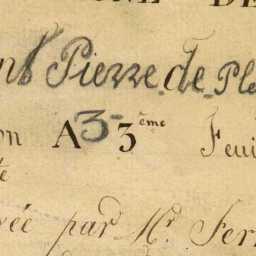 NE DE
Pierre de Ple
on A 3 3ème Feui
te
vée par Mr. Fer